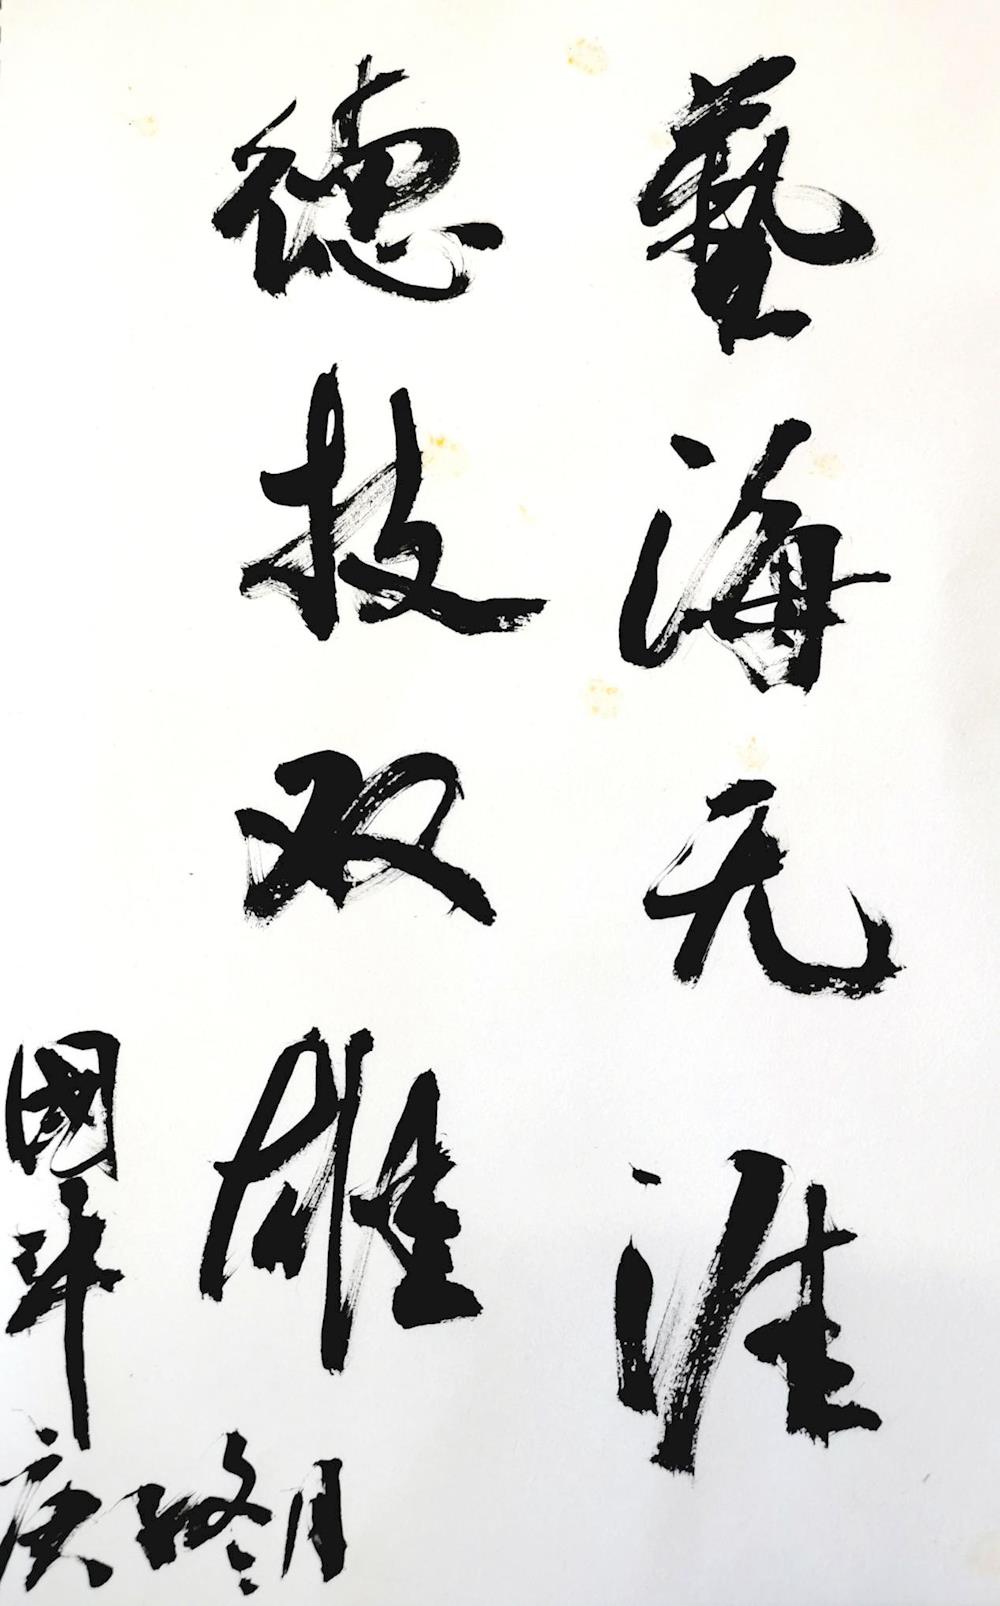 藝海无涯
德技双雄
國
庚子冬月